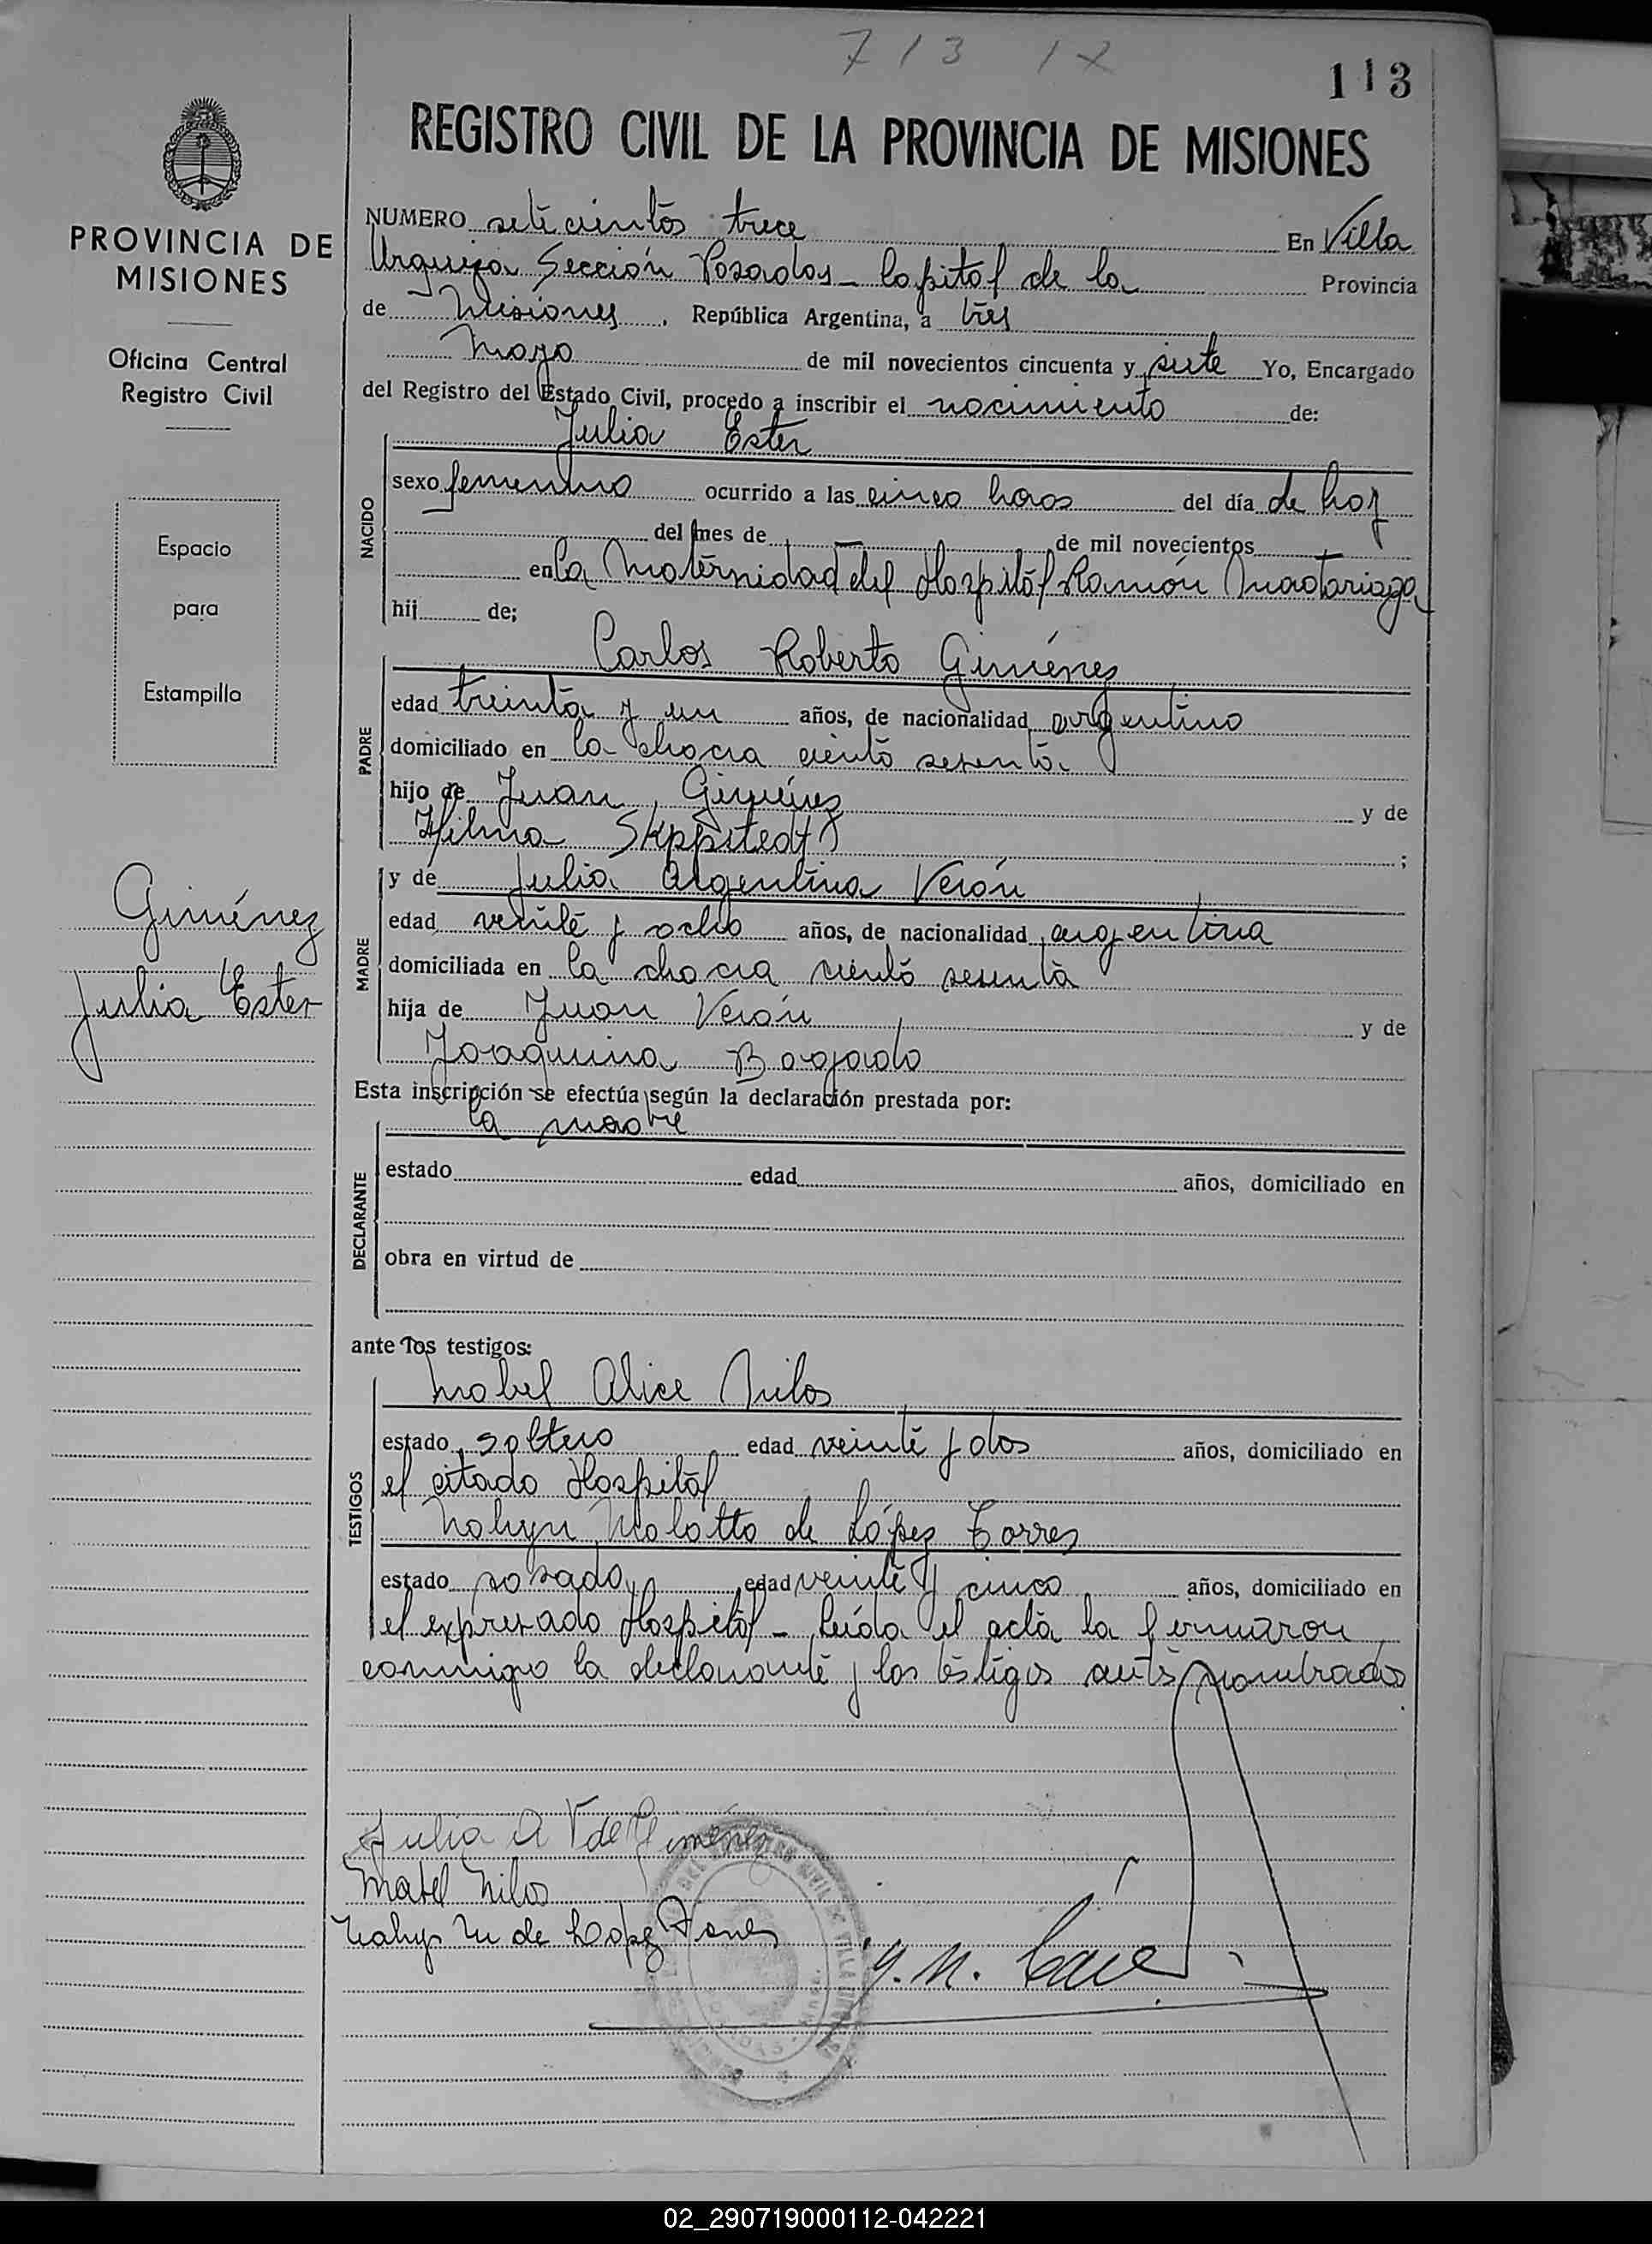 713 12
113
REGISTRO CIVIL DE LA PROVINCIA DE MISIONES
PROVINCIA DE
MISIONES
Oficina Central
Registro Civil
Espacio
para
Estampilla
Giménez
Julia Ester
NUMERO setecientos trece En Villa
Urquiza Sección Posadas - Capital de la Provincia
de Misiones, República Argentina, a tres
Mayo de mil novecientos cincuenta y siete Yo, Encargado
del Registro del Estado Civil, procedo a inscribir el nacimiento de:
NACIDO
Julia Ester
sexo femenino ocurrido a las cinco horas del día de hoy
del mes de de mil novecientos
en la Maternidad del Hospital Ramón Madariaga
hij de;
PADRE
Carlos Roberto Giménez
edad treinta y un años, de nacionalidad argentino
domiciliado en la chacra ciento sesenta
hijo de Juan Giménez y de
Hilma ;
MADRE
y de Julia Argentina Verón
edad veinte y ocho años, de nacionalidad argentina
domiciliada en la chacra ciento sesenta
hija de Juan Verón y de
Joaquina Bogado
Esta inscripción se efectúa según la declaración prestada por:
DECLARANTE
la madre
estado edad años, domiciliado en
obra en virtud de
ante los testigos:
TESTIGOS
Mabel Alice Milos
estado soltera edad veinte y dos años, domiciliado en
el citado Hospital
Molatto de López Torres
estado casada edad veinte y cinco años, domiciliado en
el expresado Hospital - Leída el acta la firmaron
conmigo la declarante y los testigos antes nombrados
Julia A V de Giménez
Mabel Milos
M de Lopez Torres
02_290719000112-042221